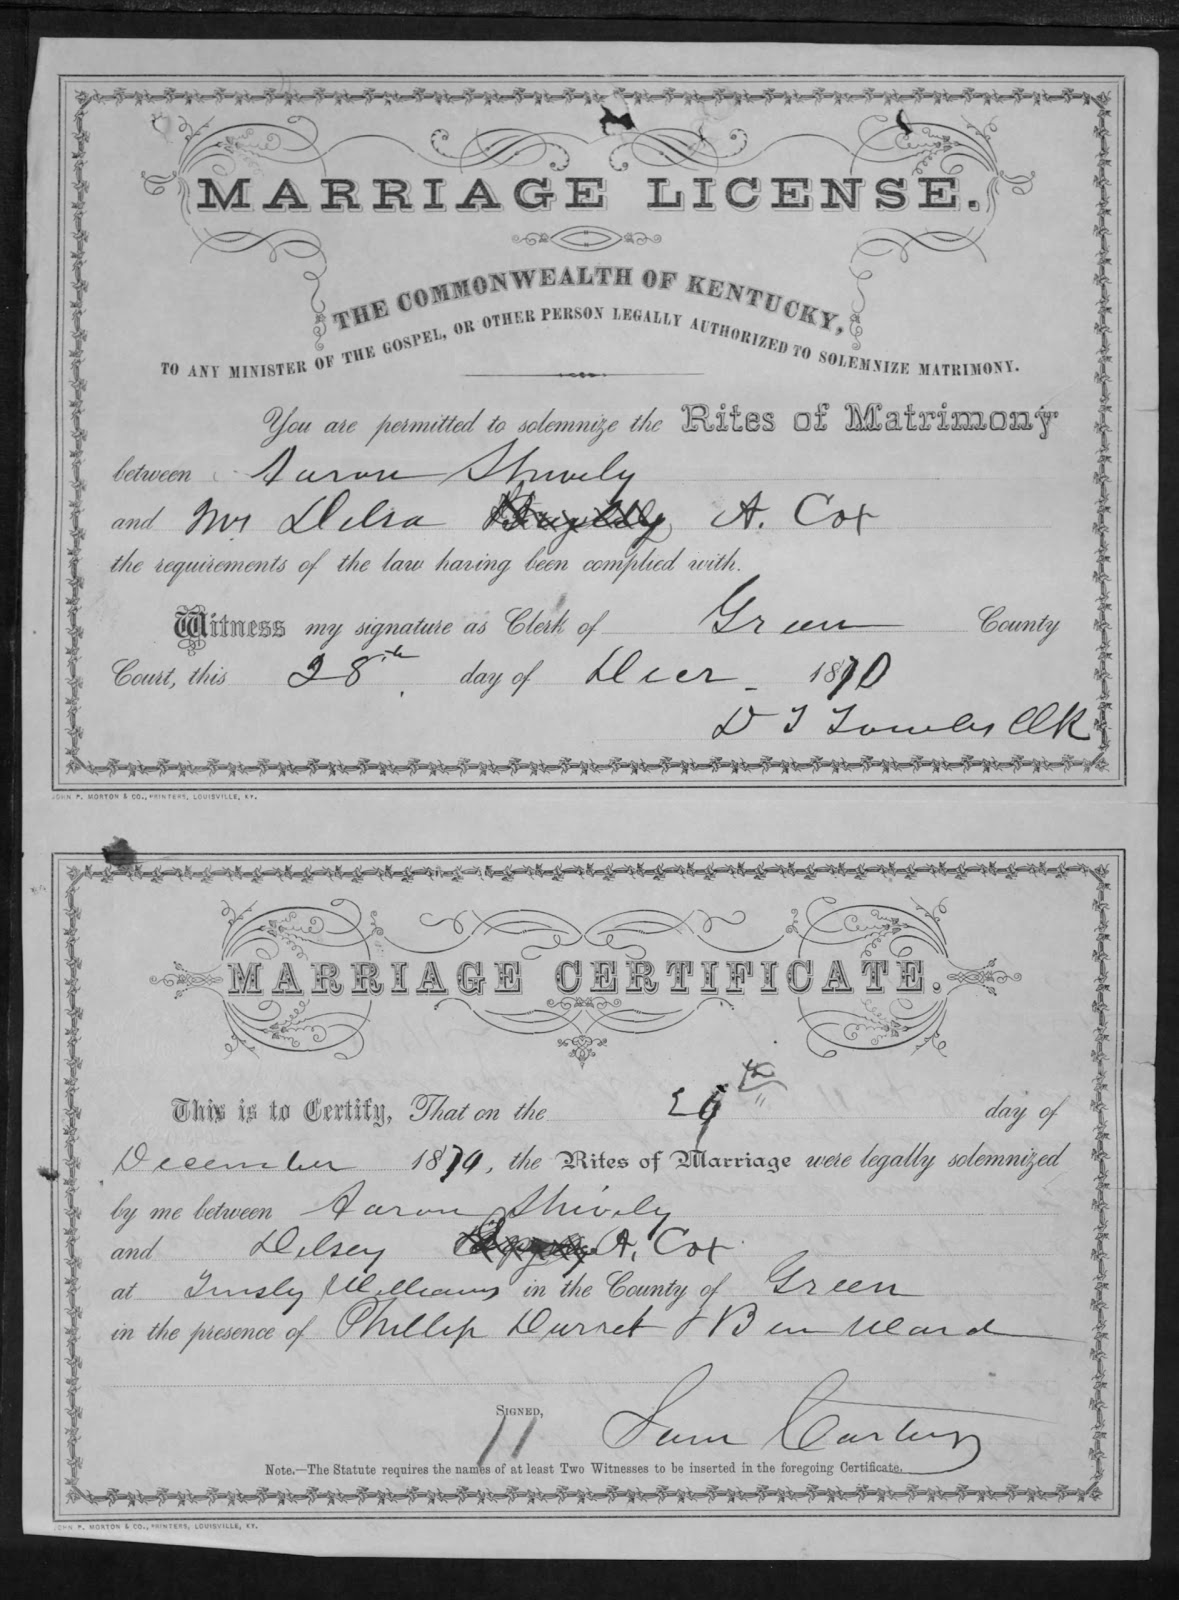 MARRIAGE LICENSE.
THE COMMONWEALTH OF KENTUCKY,
TO ANY MINISTER OF THE GOSPEL, OR OTHER PERSON LEGALLY AUTHORIZED TO SOLEMNIZE MATRIMONY.
You are permitted to solemnize the Rites of Matrimony
between Aaron Shively
and Mrs Delsa A. Cox
the requirements of the law having been complied with.
Witness my signature as Clerk of Green County
Court, this 28th day of Decr 1870
D T Towles Clk
JOHN P. MORTON & CO., PRINTERS, LOUISVILLE, KY.
MARRIAGE CERTIFICATE.
This is to Certify, That on the 29th day of
December 1870, the Rites of Marriage were legally solemnized
by me between Aaron Shively
and Delsey A. Cox
at Tinsly Williams in the County of Green
in the presence of Phillip Durret & Ben Ward
SIGNED,
Sam
NOTE.—The Statute requires the names of at least Two Witnesses to be inserted in the foregoing Certificate.
JOHN P. MORTON & CO., PRINTERS, LOUISVILLE, KY.